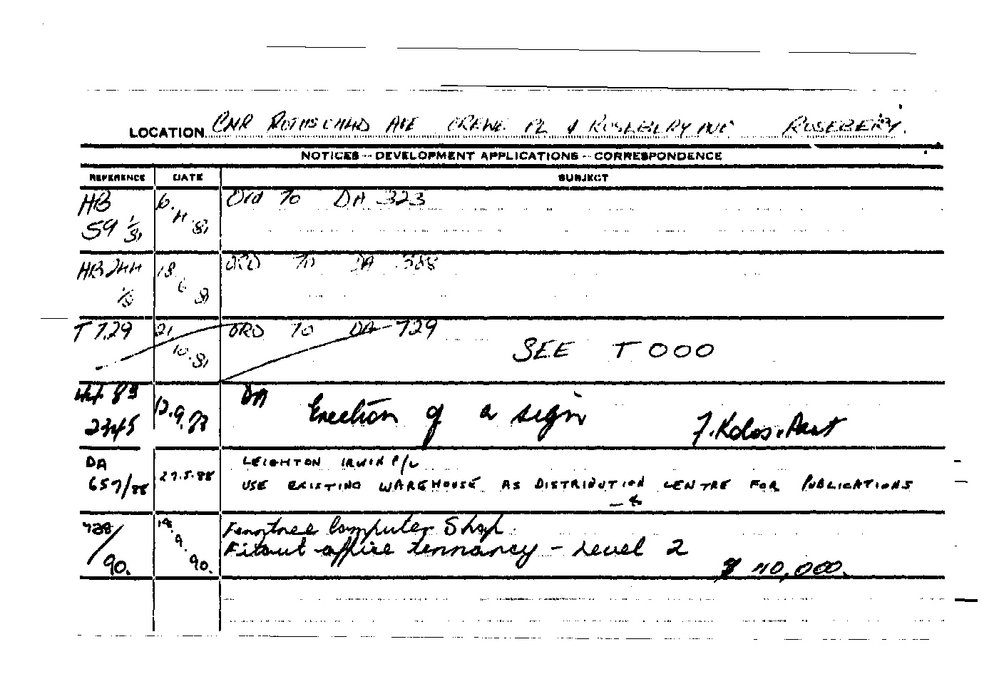 LOCATION CNR ROTHSCHILD AVE CREWE PL & ROSEBERY AVE ROSEBERY.
NOTICES - DEVELOPMENT APPLICATIONS - CORRESPONDENCE
REFERENCE DATE SUBJECT
HB 59 1/81 6.4.81 Ord to DA 323
HB 244 1/81 18 6 81 ORD TO DA
T 729 21 10.81 ORD TO DA 729
SEE T000
83 2345 12.9.83 DA Erection of a sign
DA 657/88 27.5.88 LEIGHTON IRWIN P/L
USE EXISTING WAREHOUSE AS DISTRIBUTION CENTRE FOR PUBLICATIONS
728/90. 18.9.90. Computer Shop.
Fitout office tennancy - Level 2
$ 40,000.